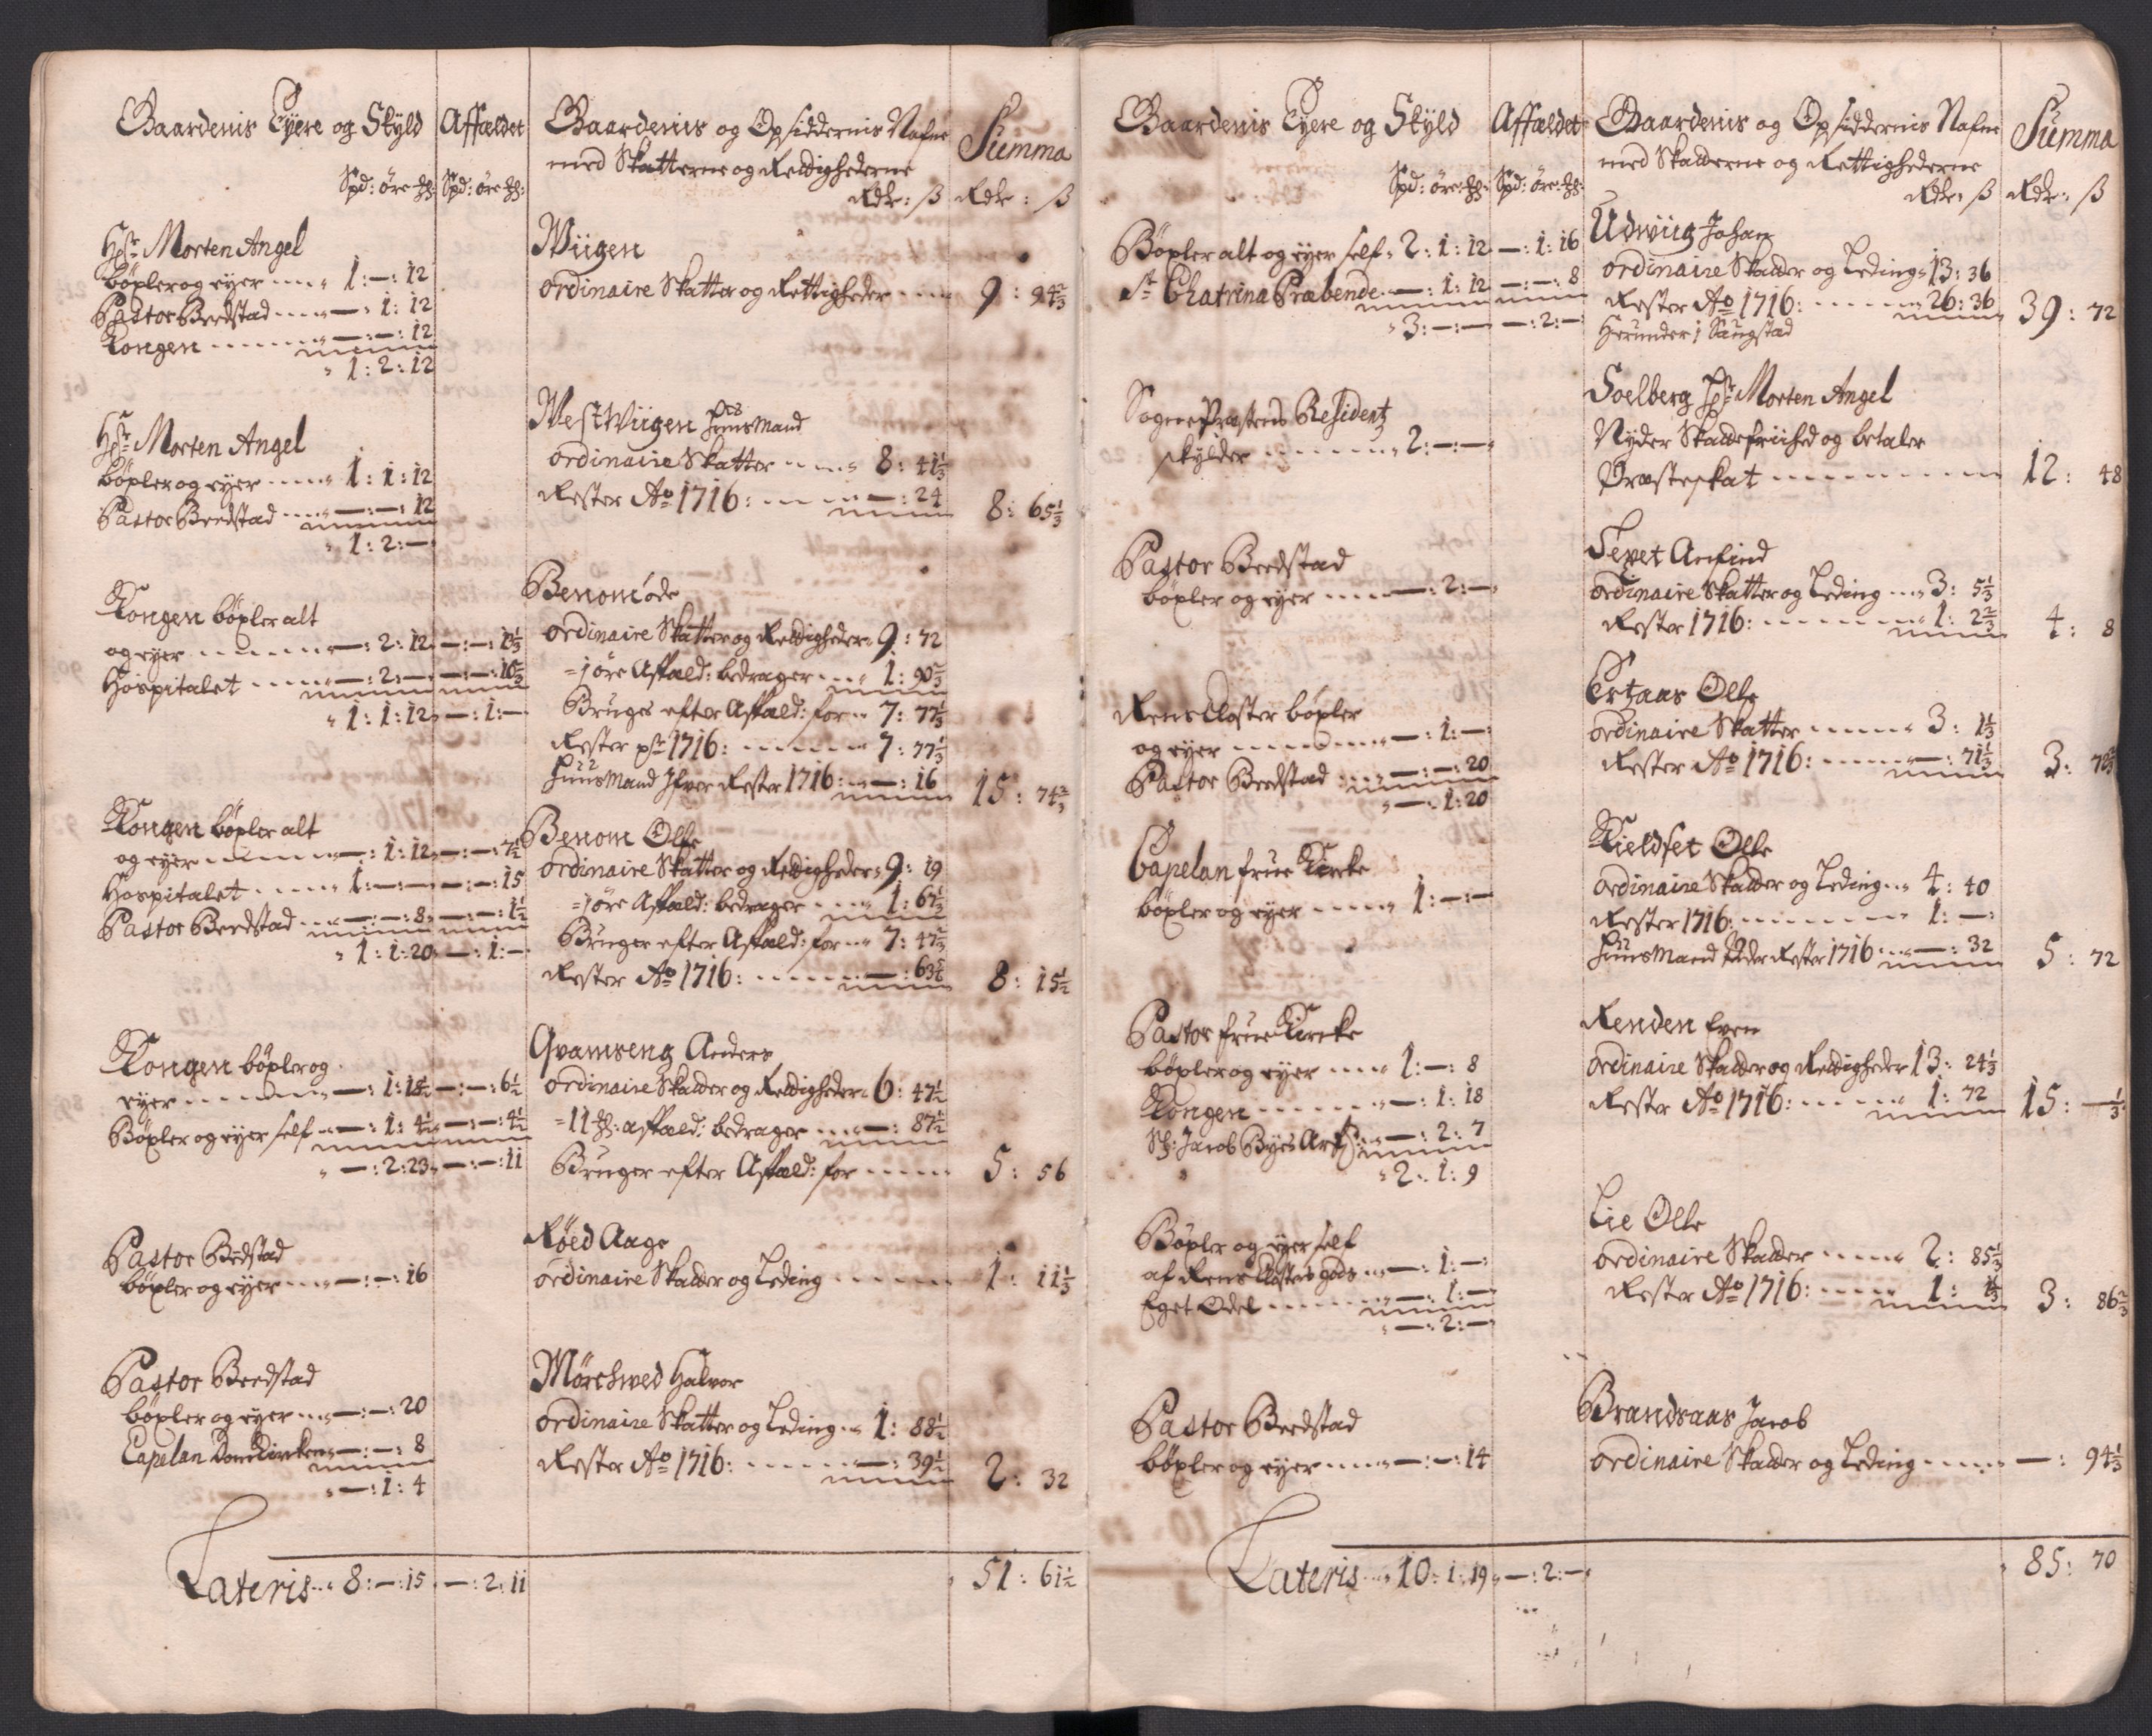 Gaardenis Eÿere og Skÿld
Spd: øre mk:
Affældet
Spd: øre mk:
Gaardenis og Opsiddernis Nafne
med Skatterne og Rettighederne
Rdlr: ß
Summa
Rdlr: ß
Hr. Morten Angel
böxler og eÿer ---- 1:—:12
Pastor Bredstad ---- —:1:12
Kongen ---- —:—:12
1:2:12
Wiigen
ordinaire Skatter og Rettigheder ---- 9: 94 2/3
Hr. Morten Angel
böxler og eÿer ---- 1:1:12
Pastor Bredstad ---- —:—:12
1:2:—
WestWiigen Huusmand
ordinaire Skatter ---- 8: 41 1/3
Rester Ao 1716: ---- —: 24 8: 65 1/3
Kongen böxler alt
og eÿer ---- —:2:12 —:—:13 1/3
Hospitalet ---- —:2:— —:—:10 2/3
1:1:12 —:1:—
Benom öde
ordinaire Skatter og Rettigheder 9: 72
= 1 öre Affæld: bedrager ---- 1: 90 2/3
Bruges efter Affæld: for 7: 77 1/3
Rester pr 1716: ---- 7: 77 1/3
Huusmand Ifver Rester 1716: —: 16 15: 74 2/3
Kongen böxler alt
og eÿer ---- —:1:12 —:—:7 1/2
Hospitalet ---- 1:—:— —:—:15
Pastor Bredstad ---- —:—:8 —:—:1 1/2
1:1:20 —:1:—
Benom Olle
ordinaire Skatter og Rettigheder 9: 19
= 1 öre Affæld: bedrager ---- 1: 67 1/2
Bruger efter Affæld: for ---- 7: 47 2/3
Rester Ao 1716: ---- —: 63 5/6 8: 15 1/2
Kongen böxler og
eÿer ---- —:1:18 1/2 —:—:6 1/2
Böxler og eÿer self —:1:4 1/2 —:—:4 1/2
—:2:23 —:—:11
Qvamseng Anders
ordinaire Skatter og Rettigheder 6: 47 1/2
= 11 mk: affæld: bedrager ---- —: 87 1/2
Bruger efter Affæld: for ---- 5: 56
Pastor Bredstad
böxler og eÿer ---- —:—:16
Röed Aage
ordinaire Skatter og Leding ---- 1: 11 1/3
Pastor Bredstad
böxler og eÿer ---- —:—:20
Capelan Domkirken —:—:8
—:1:4
Mörchwed Halvor
ordinaire Skatter og Leding 1: 88 1/2
Rester Ao 1716: ---- —: 39 1/2 2: 32
Lateris 8:—:15 —:2:11 51: 61 1/2
Gaardenis Eÿere og Skÿld
Spd: øre: mk:
Affældet
Spd: øre mk:
Gaardenis og Opsiddernis Nafne
med Skatterne og Rettighederne
Rdlr: ß
Summa
Rdlr: ß
Böxler alt og eÿer self 2:1:12 —:1:16
St Chatrina Præbende —:1:12 —:—:8
3:—:— —:2:—
Udwiig Johan
ordinaire Skatter og Leding 13: 36
Rester Ao 1716: ---- 26: 36 39: 72
Herunder i Saugstad
Sogne Præstens Residentz
skÿlder ---- 2:—:—
Soelberg Hr. Morten Angel
Nÿder Skattefriihed og betaler
Præsteskat ---- 12: 48
Pastor Bredstad
böxler og eÿer ---- —:2:—
Sevet Anfind
ordinaire Skatter og Leding 3: 5 1/3
Rester 1716: ---- 1: 2 2/3 4: 8
Rens Closter böxler
og eÿer ---- —:1:—
Pastor Bredstad ---- —:—:20
—:1:20
Ertaas Olle
ordinaire Skatter ---- 3: 1 1/3
Rester Ao 1716: ---- —: 71 1/3 3: 72 2/3
Capelan frue Kircke
böxler og eÿer ---- 1:—:—
Kieldset Olle
ordinaire Skatter og Leding 4: 40
Rester 1716: ---- 1: —:
Huusmand Peder Rester 1716: —: 32 5: 72
Pastor frue Kircke
böxler og eÿer ---- 1:—:8
Kongen ---- —:1:18
Sl: Jacob Byes Arf: —:2:7
2:1:9
Renden Even
ordinaire Skatter og Rettigheder 13: 24 1/3
Rester Ao 1716: ---- 1: 72 15: — 1/3
Böxler og eÿer self
af Rens Closters gods —:1:—
Eget Odel ---- —:1:—
—:2:—
Lie Olle
ordinaire Skatter ---- 2: 85 1/3
Rester Ao 1716: ---- 1: 1 1/3 3: 86 2/3
Pastor Bredstad
böxler og eÿer ---- —:—:14
Brandsaas Jacob
ordinaire Skatter og Leding ---- —: 94 1/3
Lateris 10:1:19 —:2:— 85: 70